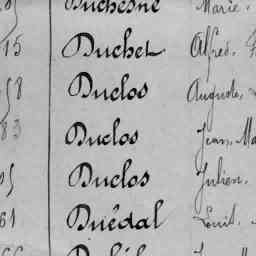 Duchesne Marie.
15 Duchet Alfred.
58 Duclos Auguste,
83 Duclos Jean, Ma
05 Duclos Julien.
61 Duédal Louis.